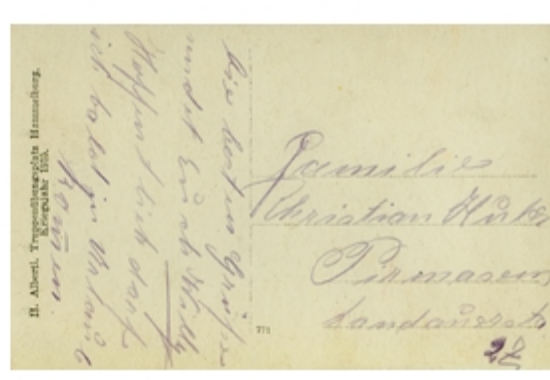 H. Alberti, Truppenübungsplatz Hammelburg.
Kriegsjahr 1915.
Die besten Grüße
sendet Euch Willy
Hoffentlich darf
ich bald in Urlaub
kommen.
Familie
Christian
Pirmasens
Landauerstr
27
771